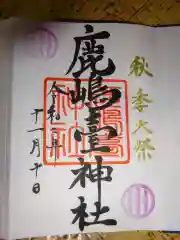 秋季大祭
鹿嶋臺神社
令和二年
十一月十日